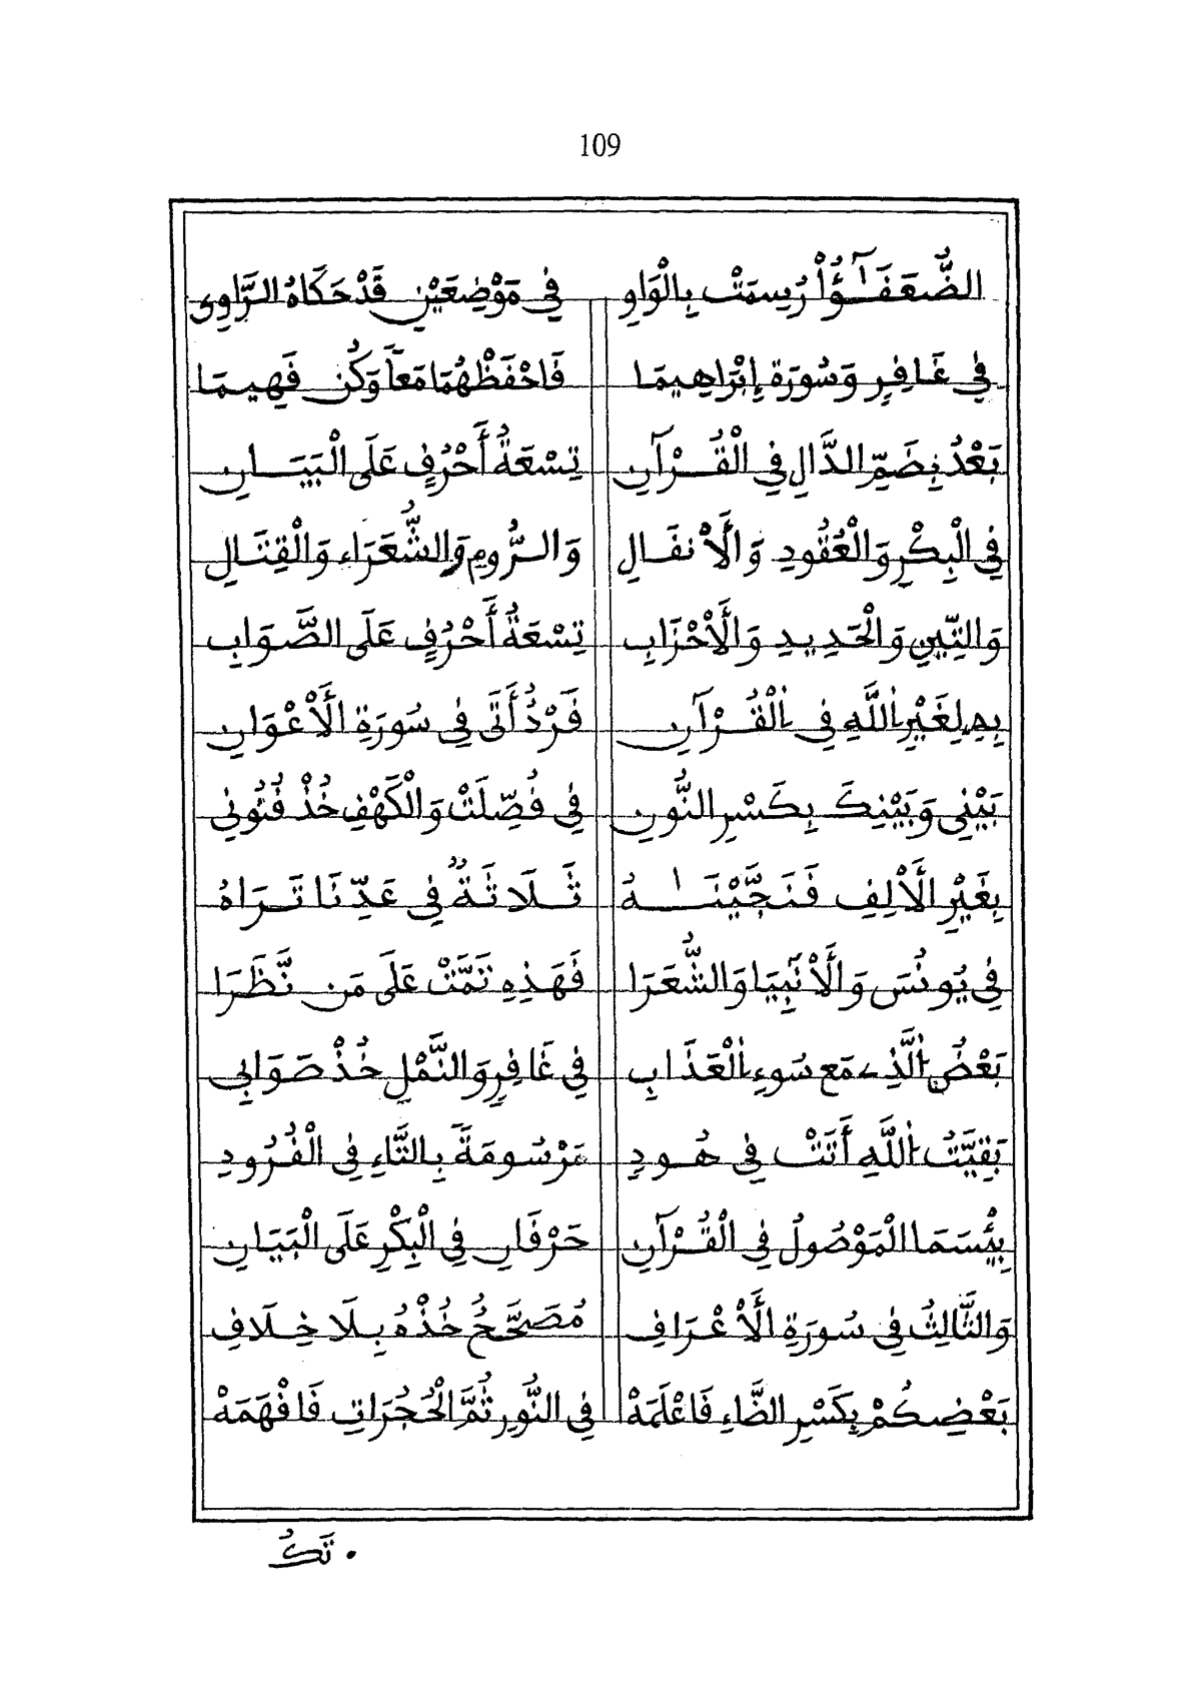 109
الضُّعَفَـٰٓؤُاْ رُسِمَتْ بِالْوَاوِ فِي مَوْضِعَيْنِ قَدْ حَكَاهُ الرَّاوِى
فِي غَافِرٍ وَسُورَة إِبْرَاهِيمَا فَاحْفَظْهُمَا مَعاً وَكُن فَهِيمَا
بَعْدُ بِضَمِّ الدَّالِ فِي الْقُرْآنِ تِسْعَةُ أَحْرُفٍ عَلَى الْبَيَانِ
فِي الْبِكْرِ وَالْعُقُودِ وَالَأْنفَالِ وَالرُّومِ وَالشُّعَرَاءِ وَالْقِتَالِ
وَالتِّينِ وَالْحَدِيدِ وَالَأْحْزَابِ تِسْعَةُ أَحْرُفٍ عَلَى الصَّوَابِ
بِهِ لِغَيْرِ اللَّهِ فِي الْقُرْآنِ فَرْدُ أَتَى فِي سُورَةِ الَأْعْوَانِ
بَيْنِي وَبَيْنِكَ بِكَسْرِ النُّونِ فِي فُصِّلَتْ وَالْكَهْفِ خُذْ فُنُونِي
بِغَيْرِ الَأْلِفِ فَنَجَّيْنَـٰهُ ثَلَاثَةٌ فِي عَدِّنَا تَرَاهُ
فِي يُونُسَ وَالَأْنبِيَا وَالشُّعَرَا فَهَذِهِ تَمَّتْ عَلَى مَن نَّظَرَا
بَعْضُ الَّذِے مَع سُوءِ الْعَذَابِ فِي غَافِرٍ وَالنَّمْلِ خُذْ صَوَابِي
بَقِيَّتُ اللَّهِ أَتَتْ فِي هُودِ مَرْسُومَةً بِالتَّاءِ فِي الْفُرُودِ
بِئْسَمَا الْمَوْصُولُ فِي الْقُرْآنِ حَرْفَانِ فِي الْبِكْرِ عَلَى الْبَيَانِ
وَالثَّالِثُ فِي سُورَةِ الَأْعْرَافِ مُصَحَّحٌ خُذْهُ بِلَا خِلَافِ
بَعْضِكُمْ بِكَسْرِ الضَّاءِ فَاعْلَمَهْ فِي النُّورِ ثُمَّ الْحُجُرَاتِ فَافْهَمَهْ